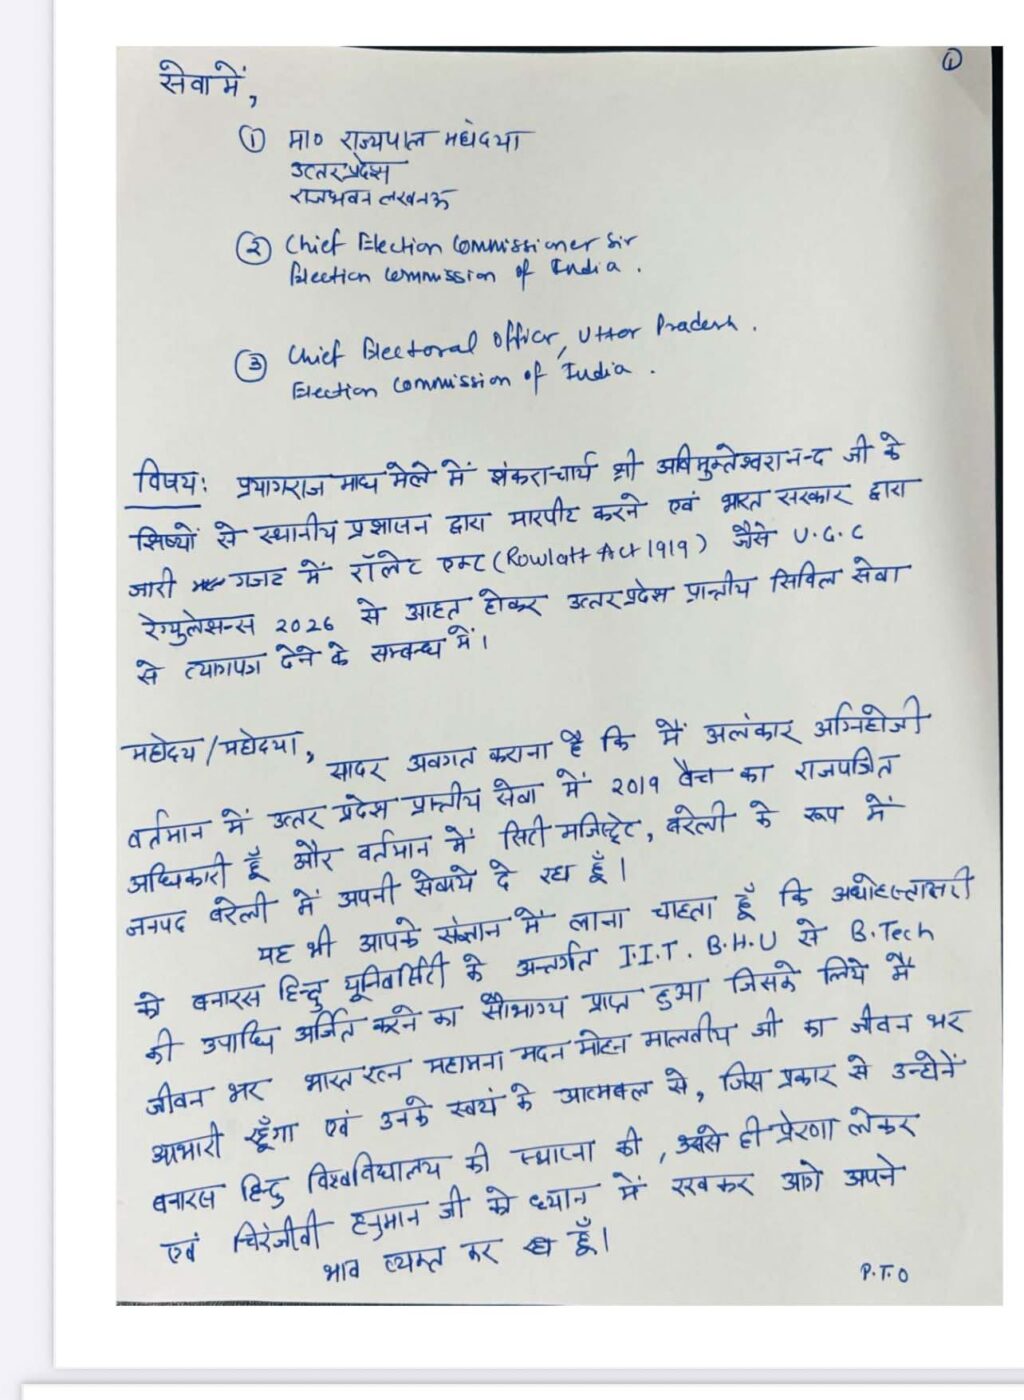 ①
सेवा में,
① मा० राज्यपाल महोदया
उत्तर प्रदेश
राजभवन लखनऊ
② Chief Election Commissioner Sir
Election Commission of India.
③ Chief Electoral Officer, Uttar Pradesh.
Election Commission of India.
विषय: प्रयागराज माघ मेले में शंकराचार्य श्री अविमुक्तेश्वरानन्द जी के
शिष्यों से स्थानीय प्रशासन द्वारा मारपीट करने एवं भारत सरकार द्वारा
जारी गजट में रॉलेट एक्ट (Rowlatt Act 1919) जैसे U.G.C
रेग्युलेशन्स 2026 से आहत होकर उत्तर प्रदेश प्रान्तीय सिविल सेवा
से त्यागपत्र देने के सम्बन्ध में।
महोदय/महोदया,
सादर अवगत कराना है कि मैं अलंकार अग्निहोत्री
वर्तमान में उत्तर प्रदेश प्रान्तीय सेवा में 2019 बैच का राजपत्रित
अधिकारी हूँ और वर्तमान में सिटी मजिस्ट्रेट, बरेली के रूप में
जनपद बरेली में अपनी सेवायें दे रहा हूँ।
यह भी आपके संज्ञान में लाना चाहता हूँ कि अधोहस्ताक्षरी
को बनारस हिन्दु यूनिवर्सिटी के अन्तर्गत I.I.T. B.H.U से B.Tech
की उपाधि अर्जित करने का सौभाग्य प्राप्त हुआ जिसके लिये मैं
जीवन भर भारत रत्न महामना मदन मोहन मालवीय जी का जीवन भर
आभारी रहूँगा एवं उनके स्वयं के आत्मबल से, जिस प्रकार से उन्होनें
बनारस हिन्दु विश्वविद्यालय की स्थापना की, उससे ही प्रेरणा लेकर
एवं चिरंजीवी हनुमान जी को ध्यान में रखकर आगे अपने
भाव व्यक्त कर रहा हूँ।
P.T.O